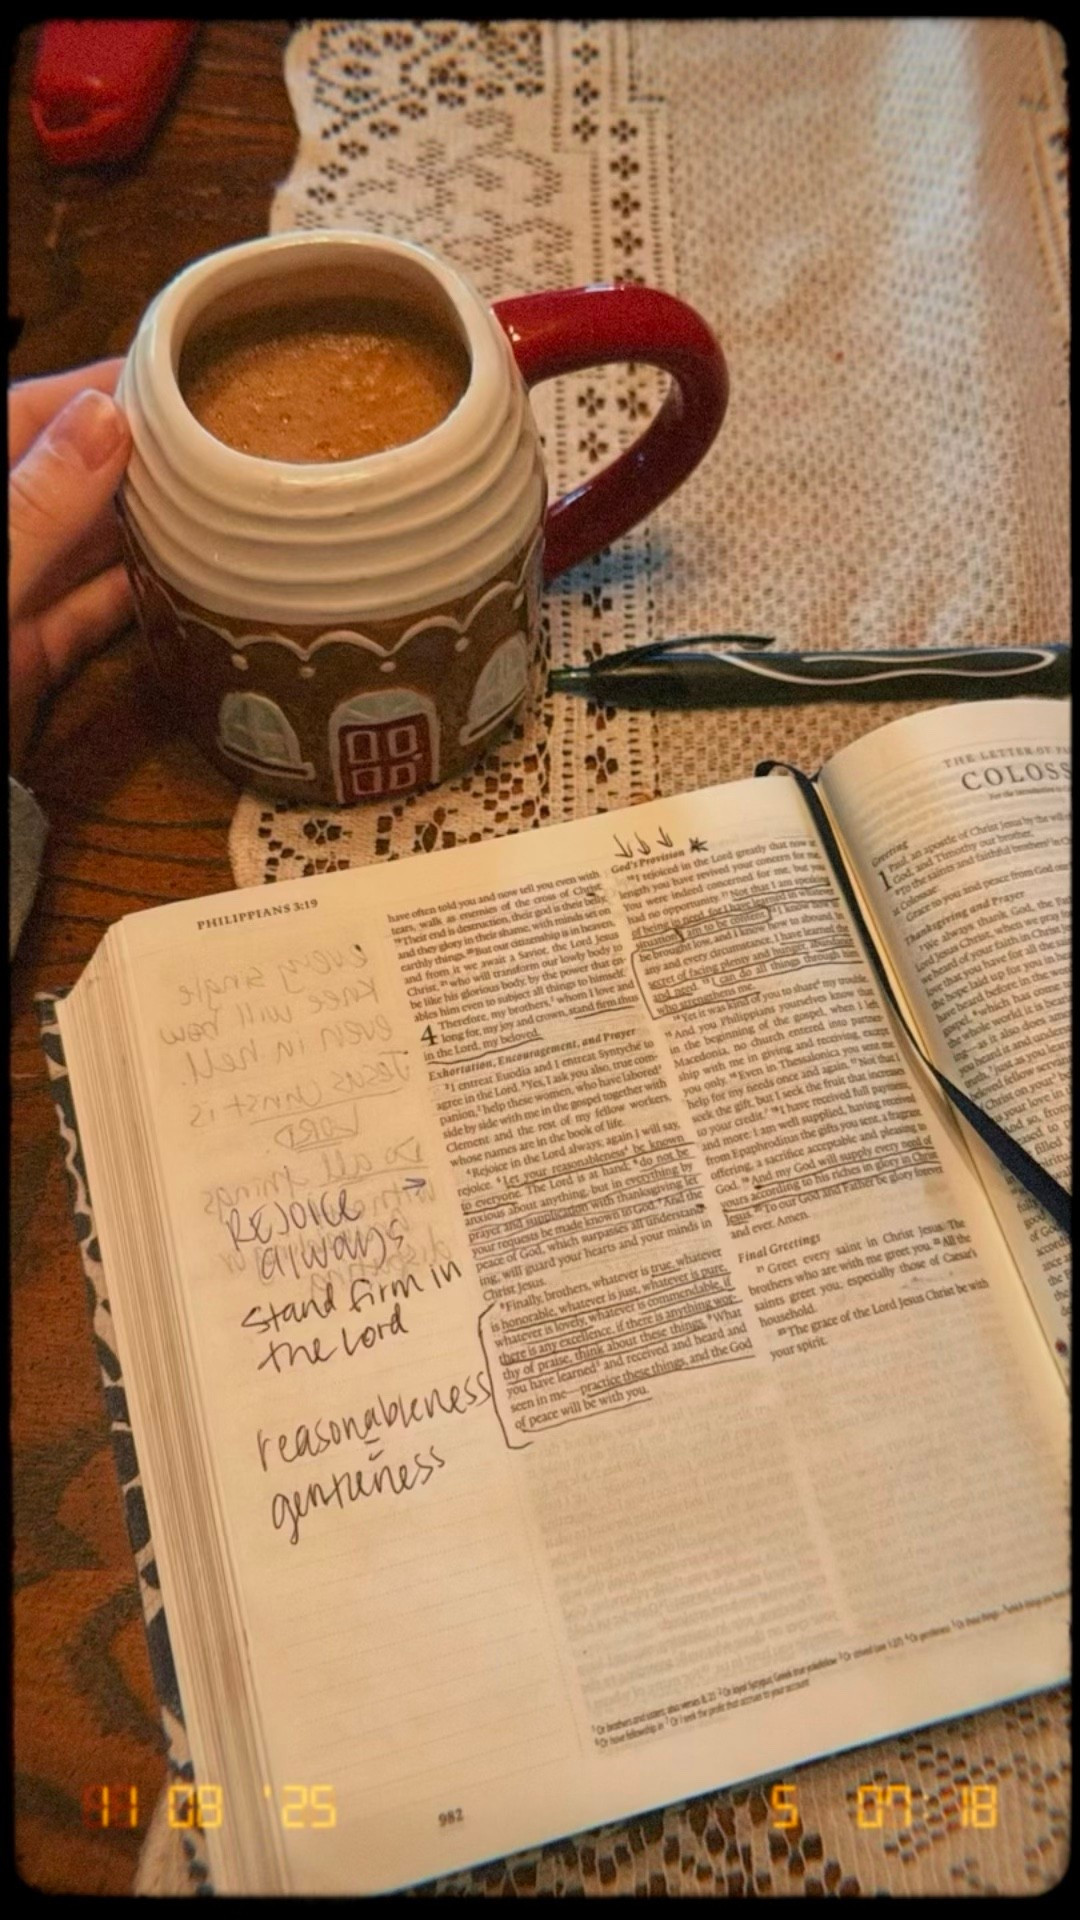 PHILIPPIANS 3:19
have often told you and now tell you even with
tears, walk as enemies of the cross of Christ.
19 Their end is destruction, their god is their belly,
and they glory in their shame, with minds set on
earthly things. 20 But our citizenship is in heaven,
and from it we await a Savior, the Lord Jesus
Christ, 21 who will transform our lowly body to
be like his glorious body, by the power that en-
ables him even to subject all things to himself.
4 Therefore, my brothers, whom I love and
long for, my joy and crown, stand firm thus
in the Lord, my beloved.
Exhortation, Encouragement, and Prayer
2 I entreat Euodia and I entreat Syntyche to
agree in the Lord. 3 Yes, I ask you also, true com-
panion, help these women, who have labored
side by side with me in the gospel together with
Clement and the rest of my fellow workers,
whose names are in the book of life.
4 Rejoice in the Lord always; again I will say,
rejoice. 5 Let your reasonableness be known
to everyone. The Lord is at hand; 6 do not be
anxious about anything, but in everything by
prayer and supplication with thanksgiving let
your requests be made known to God. 7 And the
peace of God, which surpasses all understand-
ing, will guard your hearts and your minds in
Christ Jesus.
8 Finally, brothers, whatever is true, whatever
is honorable, whatever is just, whatever is pure,
whatever is lovely, whatever is commendable, if
there is any excellence, if there is anything wor-
thy of praise, think about these things. 9 What
you have learned and received and heard and
seen in me—practice these things, and the God
of peace will be with you.
God's Provision
10 I rejoiced in the Lord greatly that now at
length you have revived your concern for me.
You were indeed concerned for me, but you
had no opportunity. 11 Not that I am speaking
of being in need, for I have learned in whatever
situation I am to be content. 12 I know how to
be brought low, and I know how to abound. In
any and every circumstance, I have learned the
secret of facing plenty and hunger, abundance
and need. 13 I can do all things through him
who strengthens me.
14 Yet it was kind of you to share my trouble.
15 And you Philippians yourselves know that
in the beginning of the gospel, when I left
Macedonia, no church entered into partner-
ship with me in giving and receiving, except
you only. 16 Even in Thessalonica you sent me
help for my needs once and again. 17 Not that I
seek the gift, but I seek the fruit that increases
to your credit. 18 I have received full payment,
and more. I am well supplied, having received
from Epaphroditus the gifts you sent, a fragrant
offering, a sacrifice acceptable and pleasing to
God. 19 And my God will supply every need of
yours according to his riches in glory in Christ
Jesus. 20 To our God and Father be glory forever
and ever. Amen.
Final Greetings
21 Greet every saint in Christ Jesus. The
brothers who are with me greet you. 22 All the
saints greet you, especially those of Caesar's
household.
23 The grace of the Lord Jesus Christ be with
your spirit.
REJOICE
always
stand firm in
the Lord
reasonableness
gentleness
982
THE LETTER OF
COLOSS
Greeting
1 Paul, an apostle of Christ Jesus by the will
God, and Timothy our brother,
2 To the saints and faithful brothers
at Colossae:
Grace to you and peace from God our
Thanksgiving and Prayer
3 We always thank God, the
11 08 '25
5 07 18